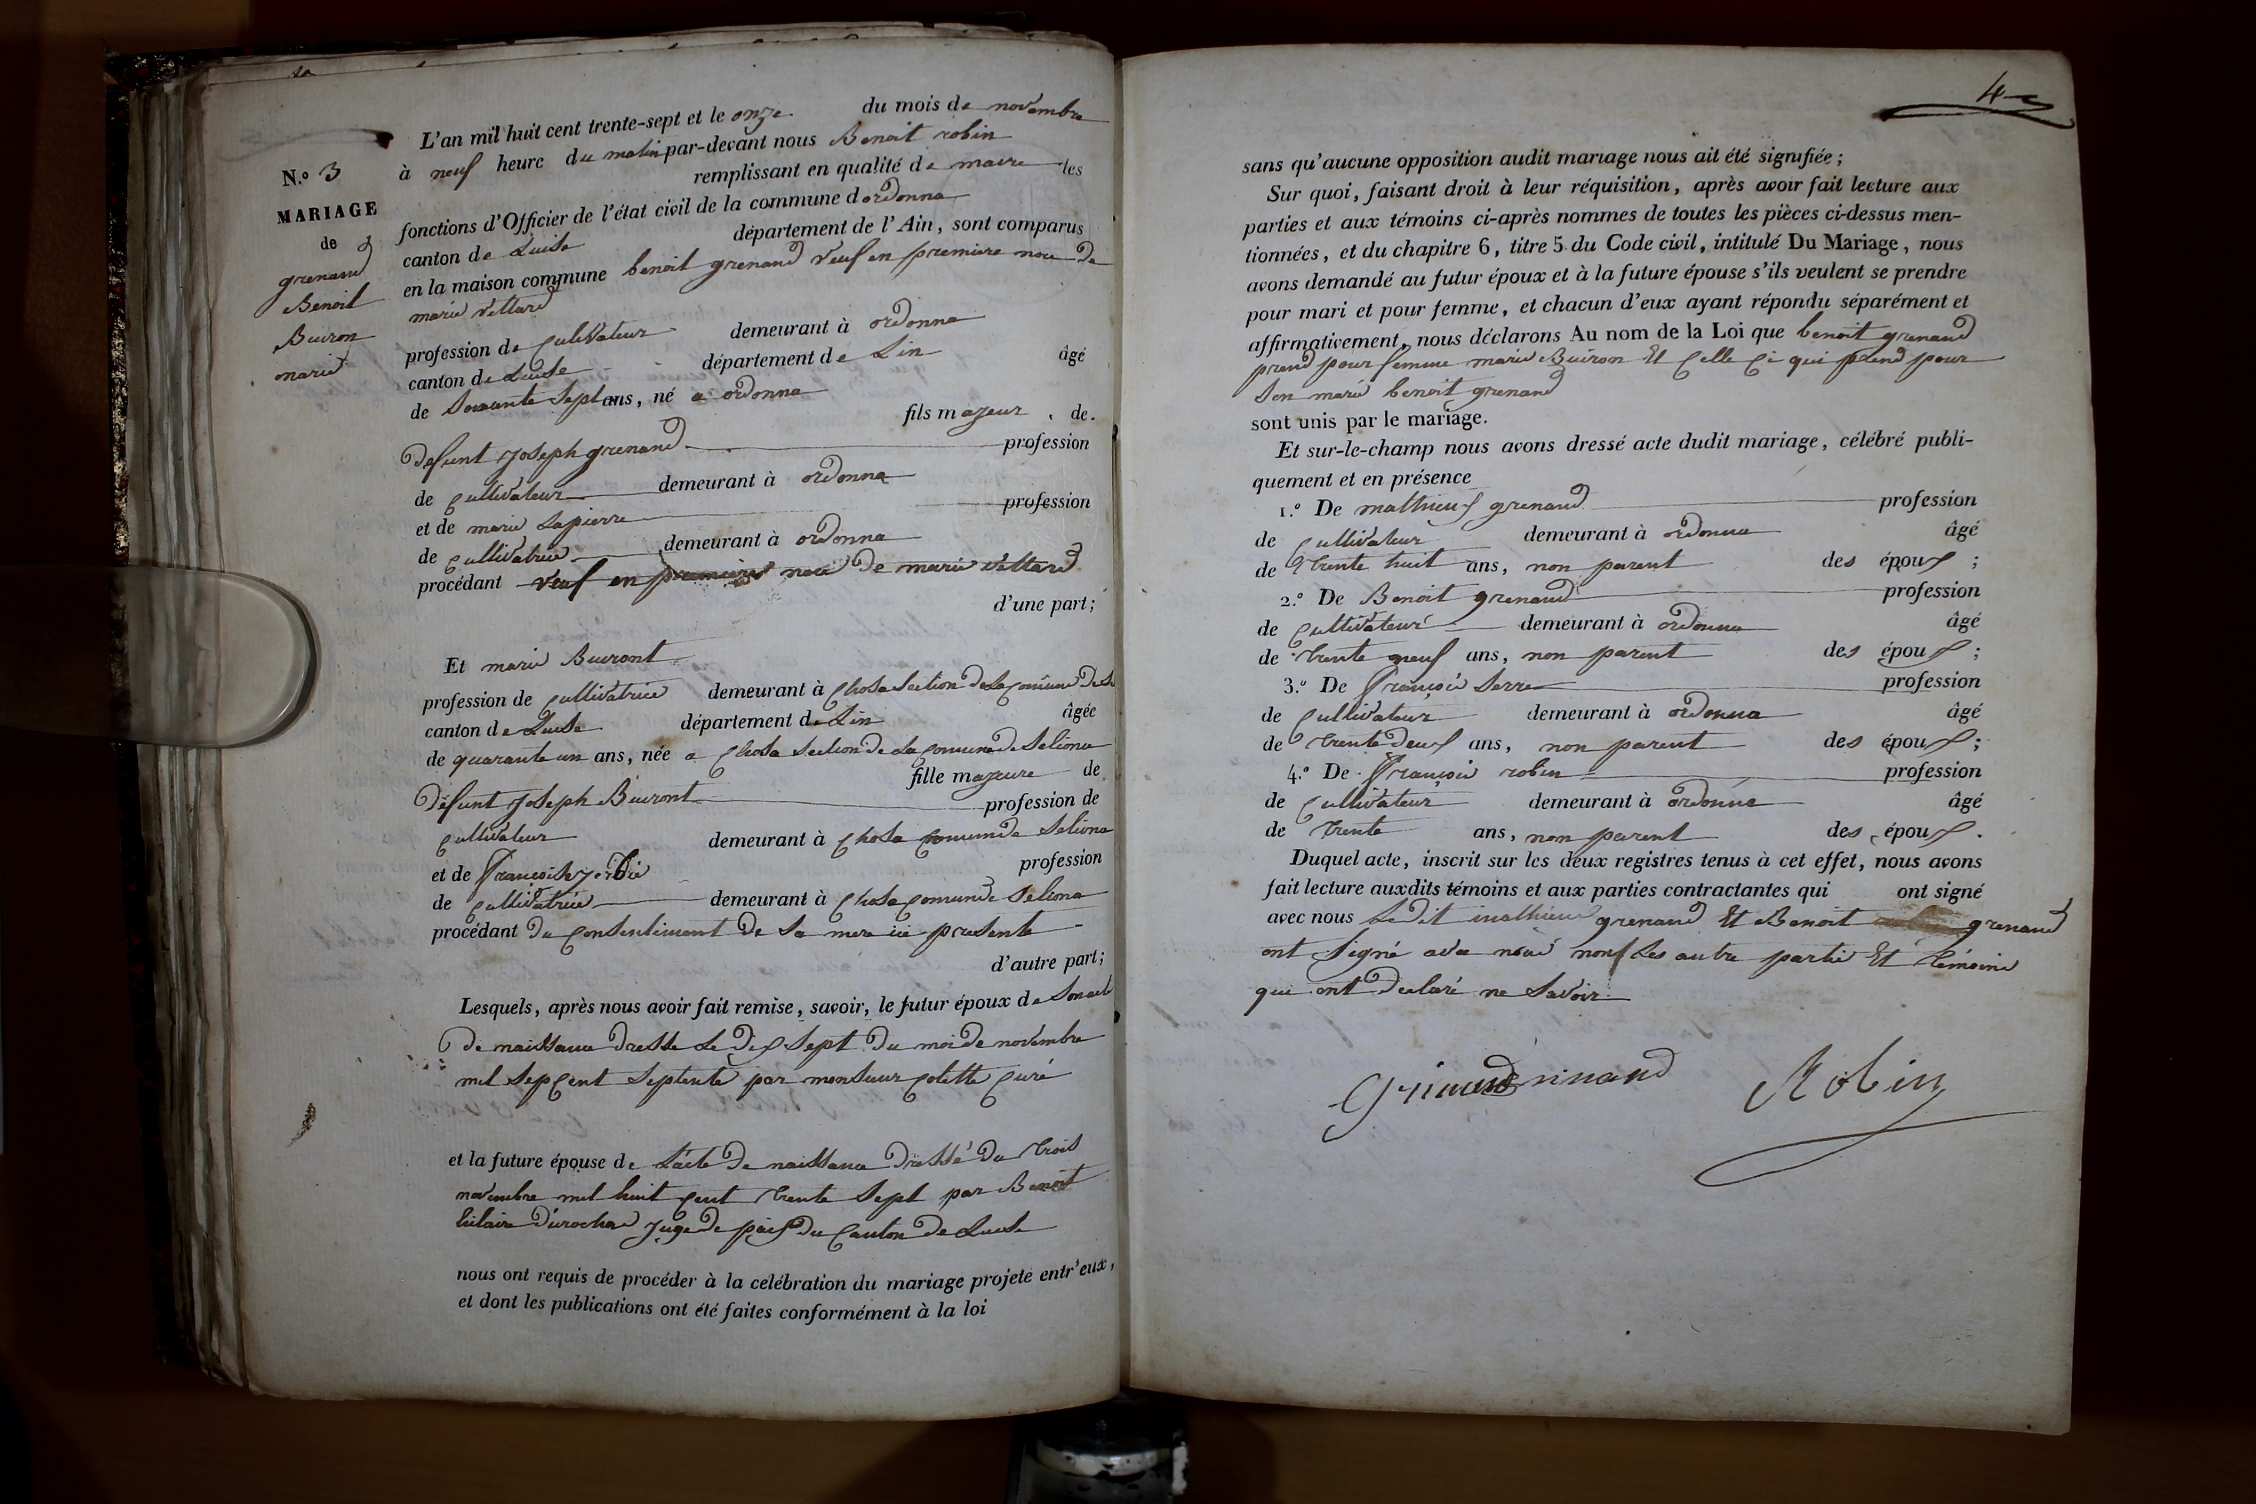 N.o 3
MARIAGE
de
grenand
Benoit
Buiron
marie
L'an mil huit cent trente-sept et le onze du mois de novembre
à neuf heure du matin par-devant nous Benoit robin
remplissant en qualité de maire les
fonctions d'Officier de l'état civil de la commune dordonna
canton de Luise département de l'Ain, sont comparus
en la maison commune benoit grenand veuf en premiere noce de
marie vettard
profession de cultivateur demeurant à ordonna
canton de Luise département de Lin âgé
de soixante sept ans, né a ordonna
fils majeur, de
defunt joseph grenand profession
de cultivateur demeurant à ordonna
et de marie Lapierre profession
de cultivatrice demeurant à ordonna
procédant veuf en premieres noce de marie vettard
d'une part;
Et marie Buiront
profession de cultivatrice demeurant à Chosa section de la comune de
canton de Luise département de Lin âgée
de quarante un ans, née a Chosa section de la comune de Seliona
fille majeure de
défunt joseph Buiront profession de
cultivateur demeurant à Chosa comune de Seliona
et de françoise profession
de cultivatrice demeurant à Chosa comune de Seliona
procédant du consentiment de sa mere ici presente
d'autre part;
Lesquels, après nous avoir fait remise, savoir, le futur époux de son acte
de naissance dresse le dix sept du moi de novembre
mil sepcent septente par monsieur colette curé
et la future épouse de l'acte de naissance dressé du trois
novembre mil huit cent trente sept par Benoit
hilaire durochas juge de paix du canton de Luise
nous ont requis de procéder à la celébration du mariage projeté entr'eux,
et dont les publications ont été faites conformément à la loi
4
sans qu'aucune opposition audit mariage nous ait été signifiée;
Sur quoi, faisant droit à leur réquisition, après avoir fait lecture aux
parties et aux témoins ci-après nommes de toutes les pièces ci-dessus men-
tionnées, et du chapitre 6, titre 5 du Code civil, intitulé Du Mariage, nous
avons demandé au futur époux et à la future épouse s'ils veulent se prendre
pour mari et pour femme, et chacun d'eux ayant répondu séparément et
affirmativement, nous déclarons Au nom de la Loi que benoit grenand
prend pour femme marie Buiron Et celle ci qui prend pour
son marie benoit grenand
sont unis par le mariage.
Et sur-le-champ nous avons dressé acte dudit mariage, célébré publi-
quement et en présence
1.o De mathieu grenand profession
de cultivateur demeurant à ordonna âgé
de trente huit ans, non parent des époux;
2.o De Benoit grenand profession
de cultivateur demeurant à ordonna âgé
de trente neuf ans, non parent des époux;
3.o De françois Serre profession
de cultivateur demeurant à ordonna âgé
de trente deux ans, non parent des époux;
4.o De françois robin profession
de cultivateur demeurant à ordonna âgé
de trente ans, non parent des époux.
Duquel acte, inscrit sur les deux registres tenus à cet effet, nous avons
fait lecture auxdits témoins et aux parties contractantes qui ont signé
avec nous Ledit mathieu grenand Et Benoit grenand
ont signé avec nous non les autre partie Et témoins
qui ont declaré ne savoir
Robin